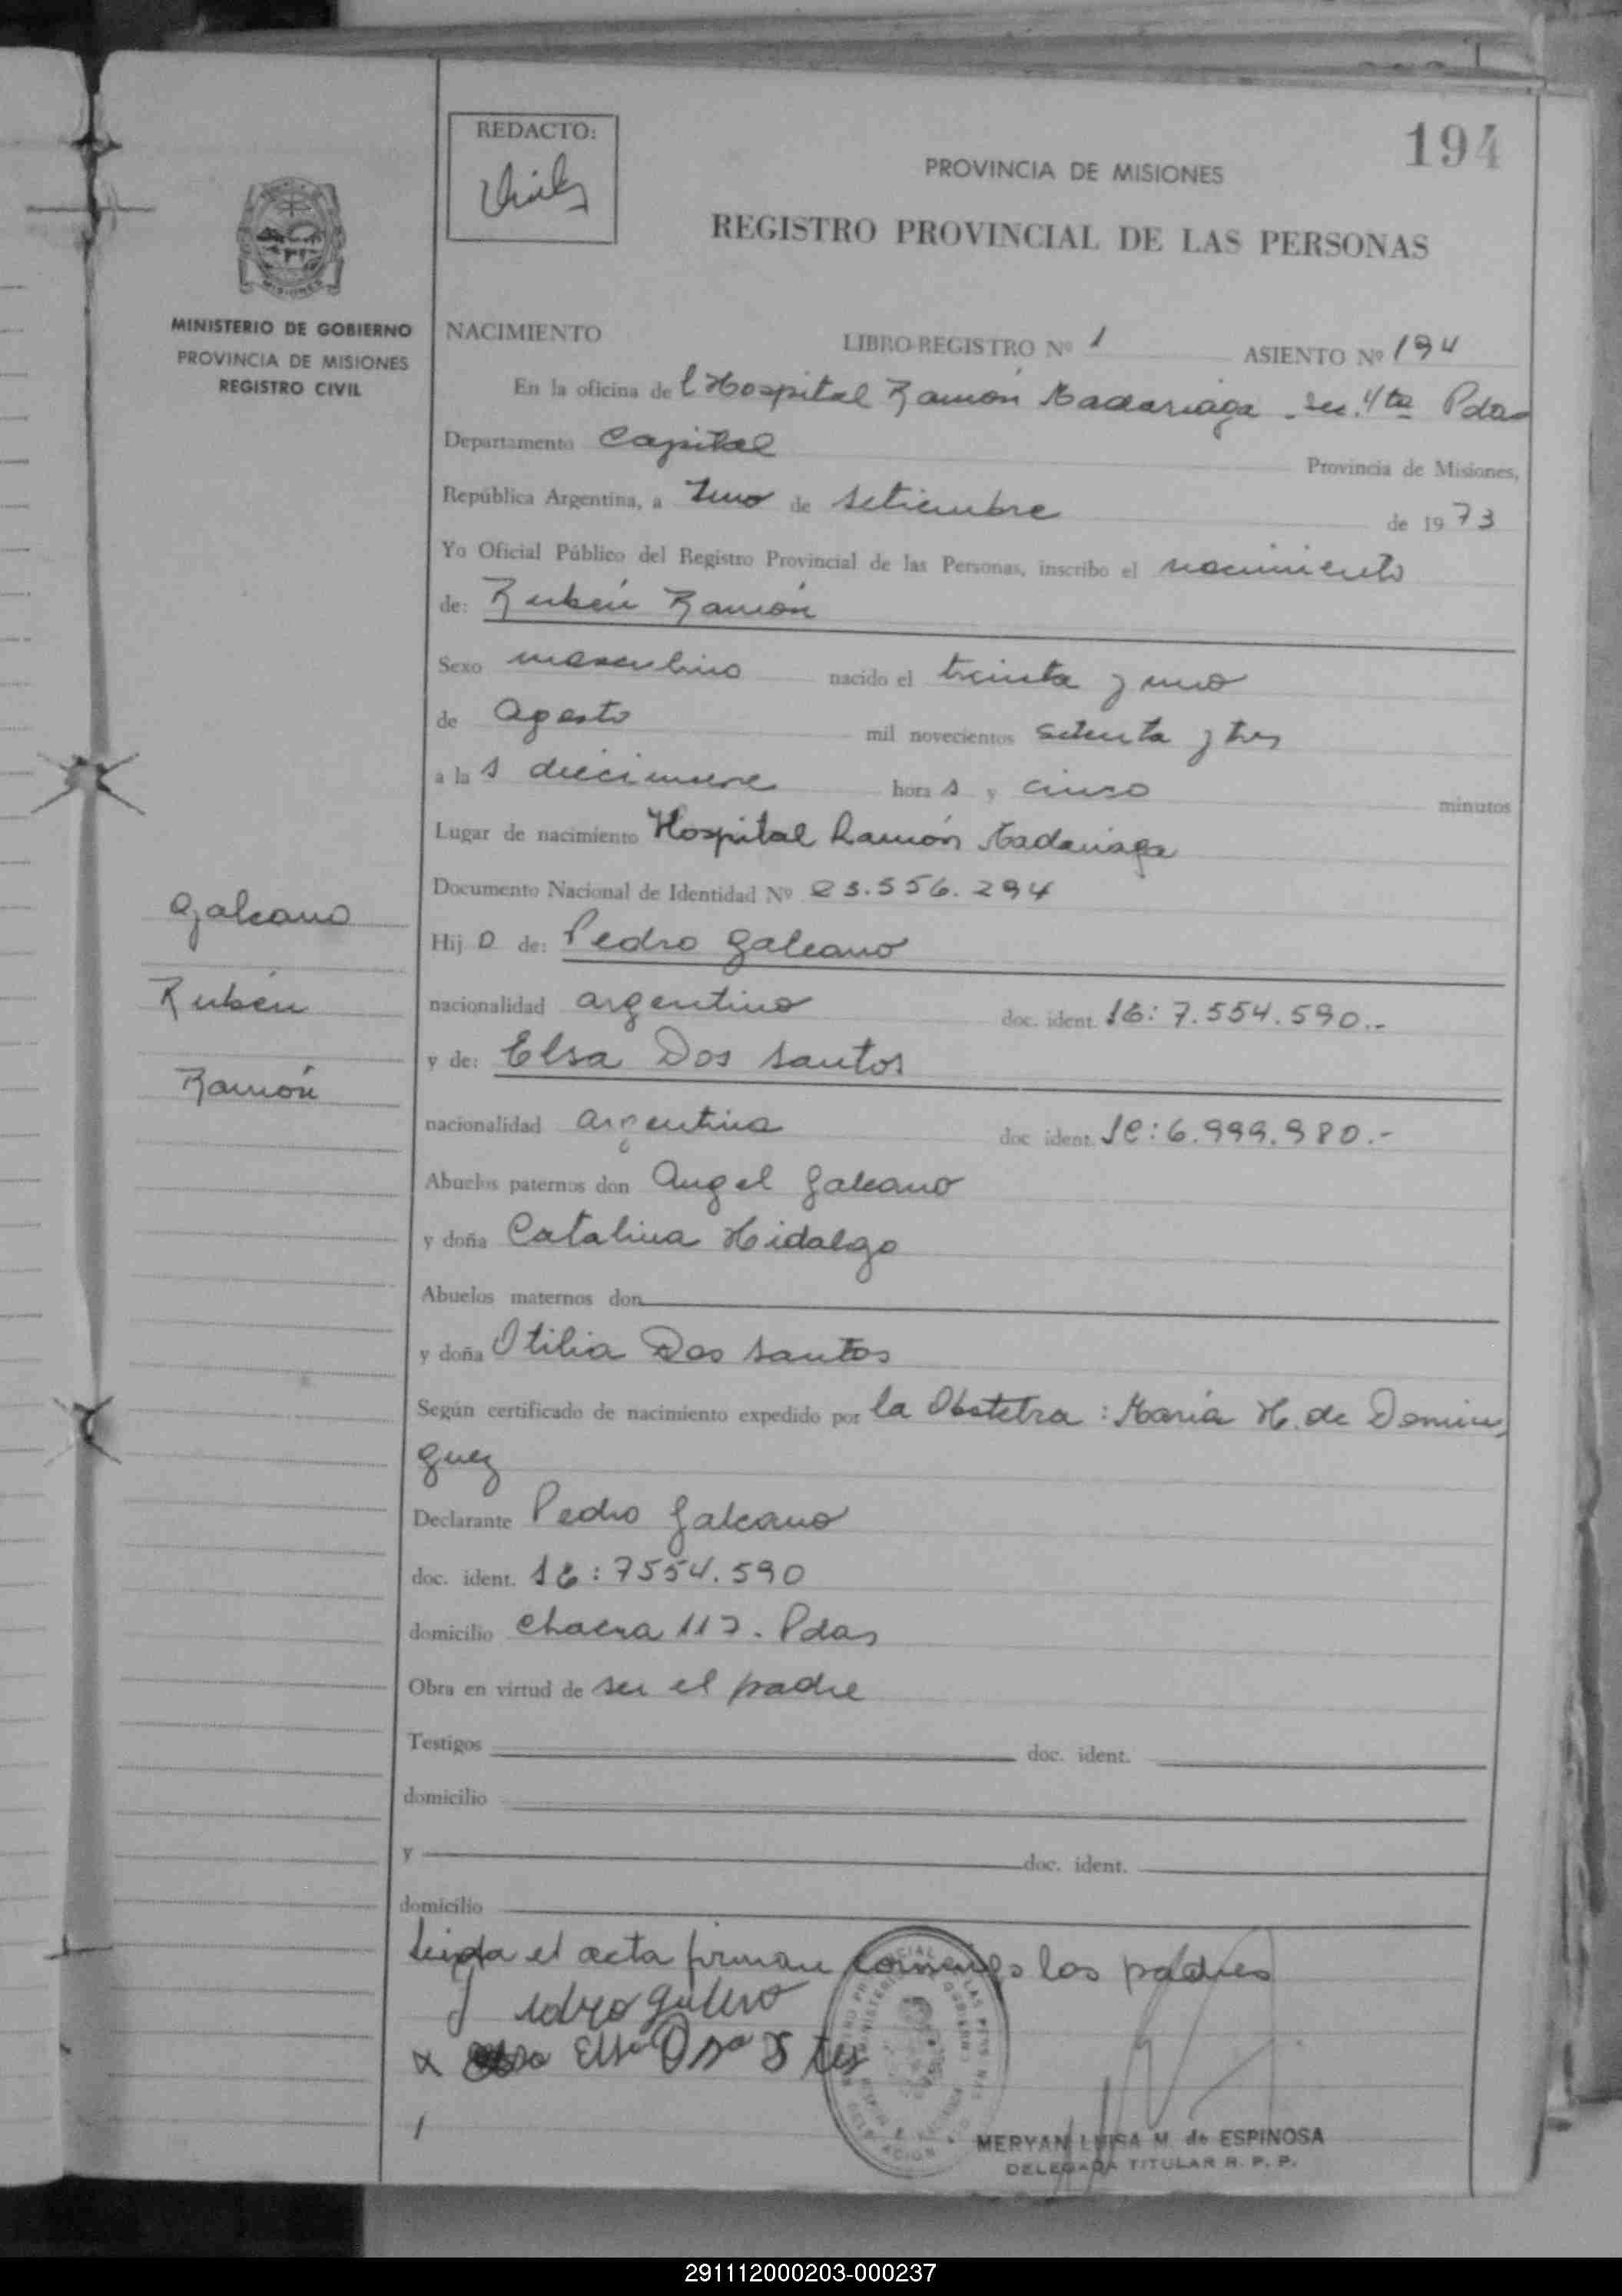 194
REDACTO:
PROVINCIA DE MISIONES
REGISTRO PROVINCIAL DE LAS PERSONAS
MINISTERIO DE GOBIERNO
PROVINCIA DE MISIONES
REGISTRO CIVIL
NACIMIENTO LIBRO-REGISTRO Nº 1 ASIENTO Nº 194
En la oficina de l Hospital Ramón Madariaga - Sec. 4ta Pdas
Departamento Capital Provincia de Misiones,
República Argentina, a uno de setiembre de 1973
Yo Oficial Público del Registro Provincial de las Personas, inscribo el nacimiento
de: Rubén Ramón
Sexo masculino nacido el treinta y uno
de Agosto mil novecientos setenta y tres
a la s diecinueve hora s y cinco minutos
Lugar de nacimiento Hospital Ramón Madariaga
Documento Nacional de Identidad Nº 23.556.294
Galeano
Rubén
Ramón
Hij o de: Pedro Galeano
nacionalidad argentino doc. ident. 7.554.590.-
y de: Elsa Dos Santos
nacionalidad argentina doc ident. 6.999.980.-
Abuelos paternos don Angel Galeano
y doña Catalina Hidalgo
Abuelos maternos don
y doña Otilia Dos Santos
Según certificado de nacimiento expedido por la Obstetra: María H. de Domin
guez
Declarante Pedro Galeano
doc. ident. 7554.590
domicilio Chacra 117. Pdas
Obra en virtud de ser el padre
Testigos doc. ident.
domicilio
y doc. ident.
domicilio
Leida el acta firman conmigo los padres
MERYAN LUISA M. de ESPINOSA
DELEGADA TITULAR R. P. P.
291112000203-000237